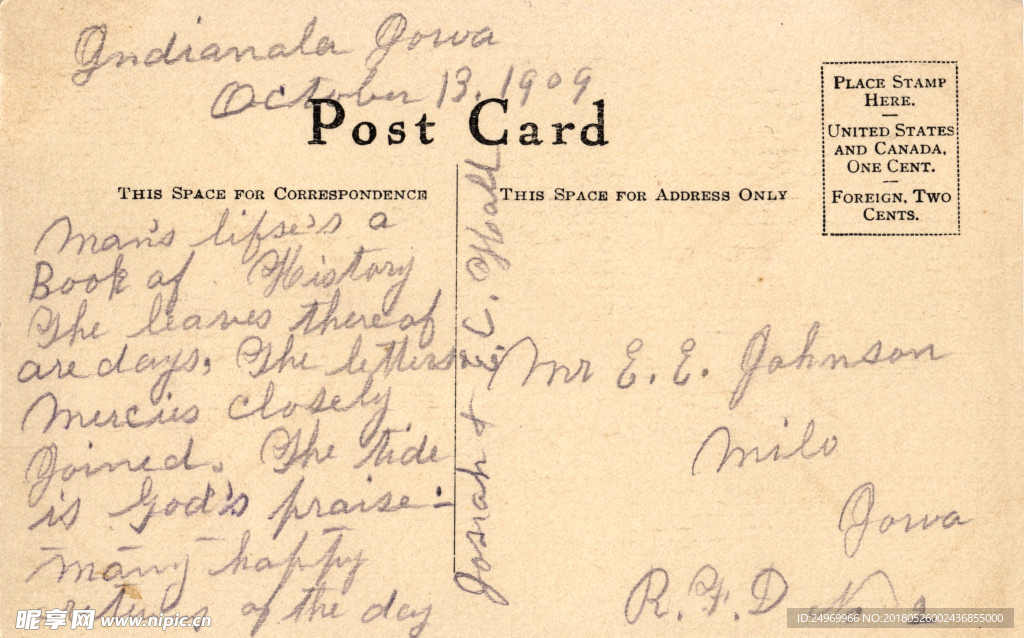 Indianala Iowa
October 13. 1909
Post Card
THIS SPACE FOR CORRESPONDENCE
THIS SPACE FOR ADDRESS ONLY
PLACE STAMP
HERE.
UNITED STATES
AND CANADA,
ONE CENT.
FOREIGN, TWO
CENTS.
Man's lifse's a
Book of History
The leaves thereof
are days. The letters
Mercies closely
Joined. The tide
is God's praise -
many happy
returns of the day
Josiah & E. C.
Mr E. E. Johnson
Milo
Iowa
R. F. D
昵享网 www.nipic.cn
ID:24969966 NO:20180526002436855000